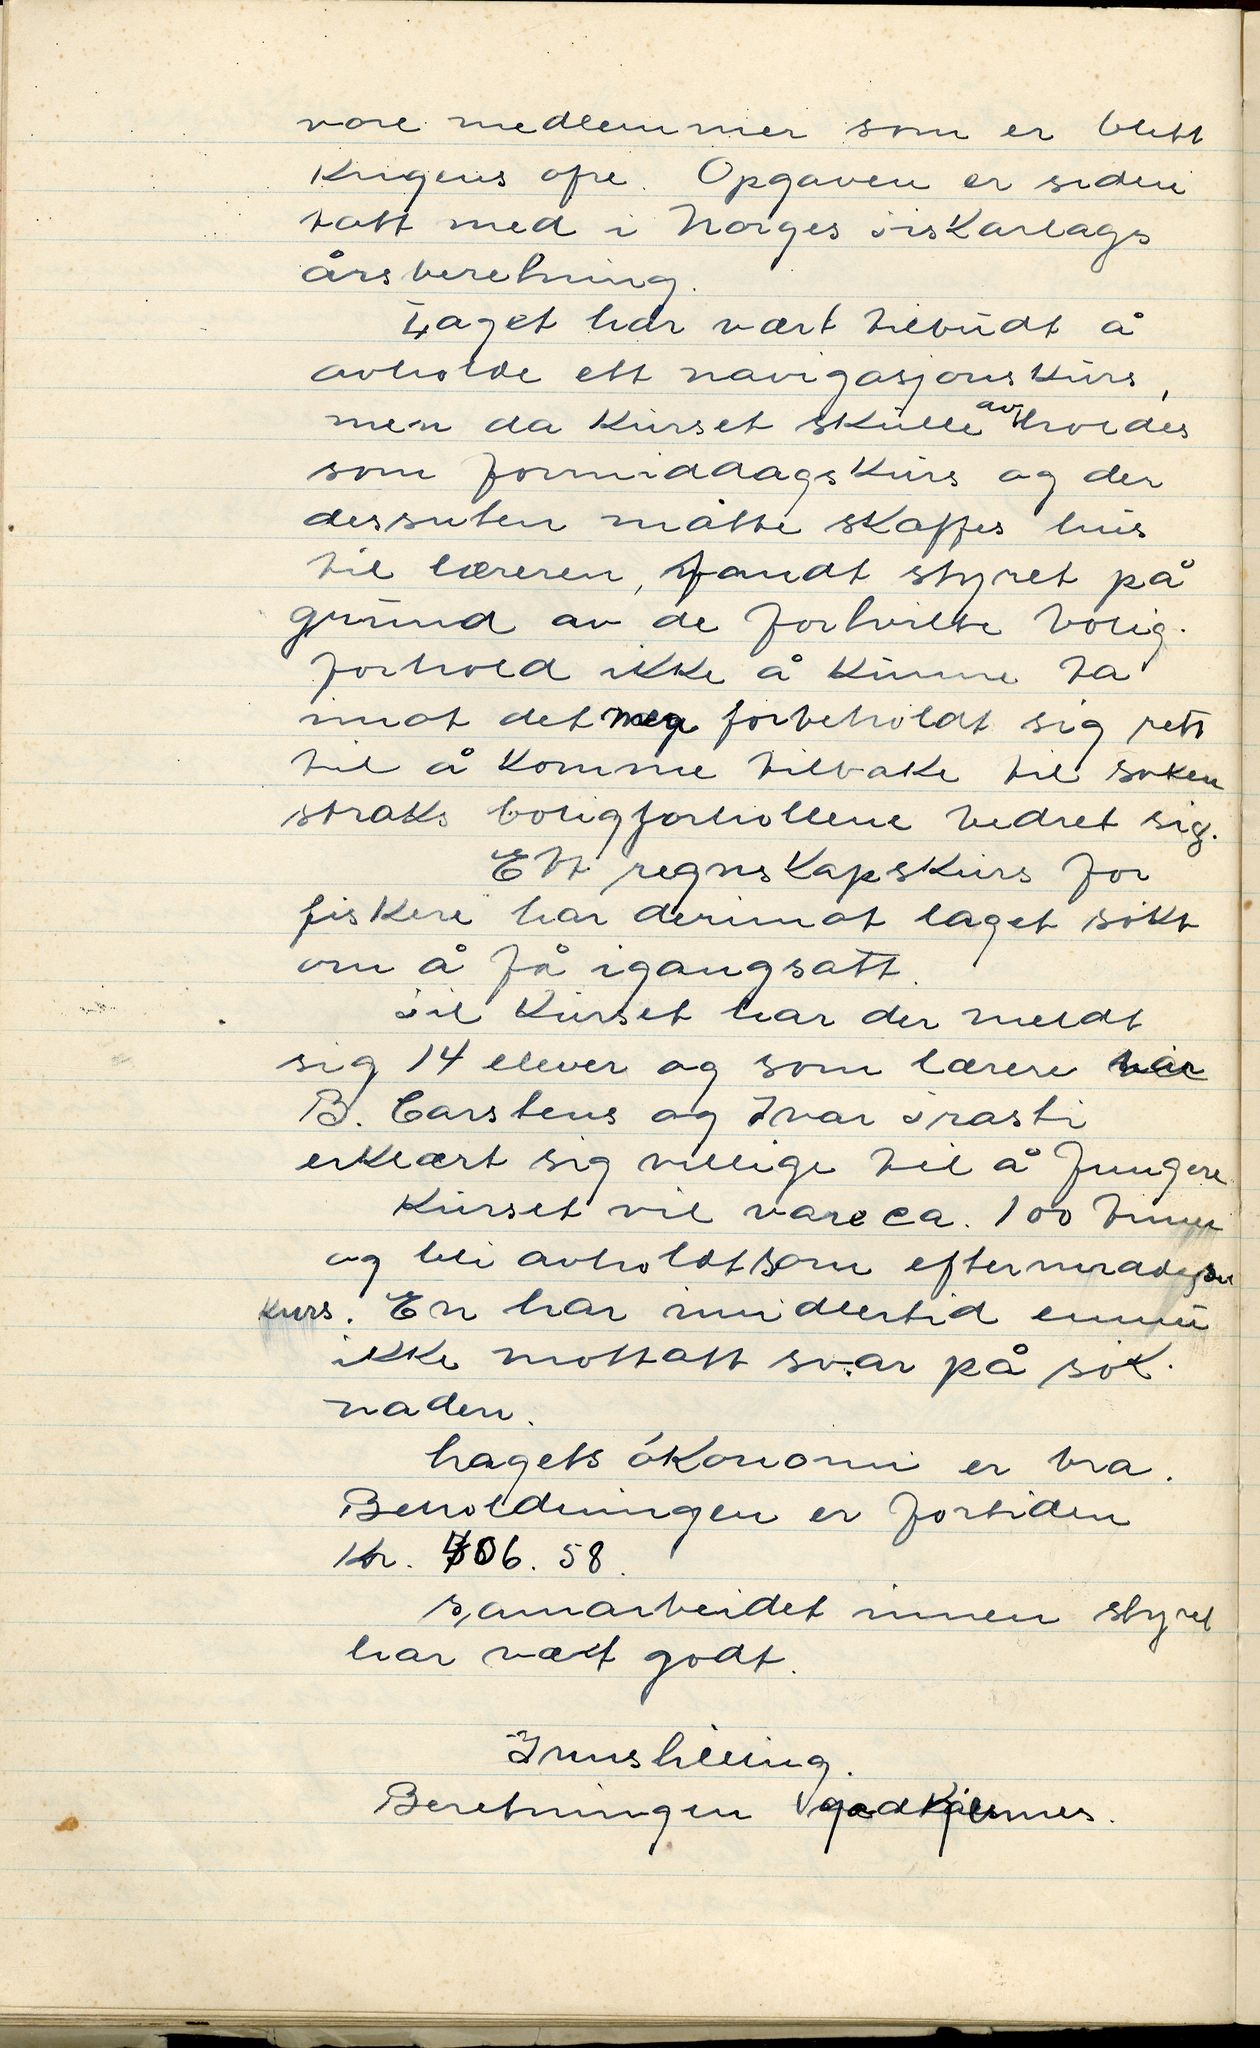 vore medlemmer som er blitt
Krigens ofre. Opgaven er siden
tatt med i Norges Fiskarlags
årsberetning.
Laget har vært tilbudt å
avholde ett navigasjonskurs,
men da kurset skulle avholdes
som formiddagskurs og der
dessuten måtte skaffes hus
til læreren, fandt styret på
grund av de forhvilte bolig-
forhold ikke å kunne ta
imot det men forbeholdt sig rett
til å komme tilbake til saken
straks boligforhollene bedret sig.
Ett regnskapskurs for
fiskere har derimot laget søkt
om å få igangsatt.
Til Kurset har der meldt
sig 14 elever og som lærere har
B. Carstens og Ivar Trasti
erklært sig villige til å fungere
Kurset vil vare ca. 100 timer
og bli avholdt som eftermiddags
kurs. En har imidlertid ennu
ikke mottatt svar på søk-
naden.
Lagets økonomi er bra.
Beholdningen er fortiden
Kr. 406.58.
Samarbeidet innen styret
har vært godt.
Innstilling.
Beretningen godkjennes.